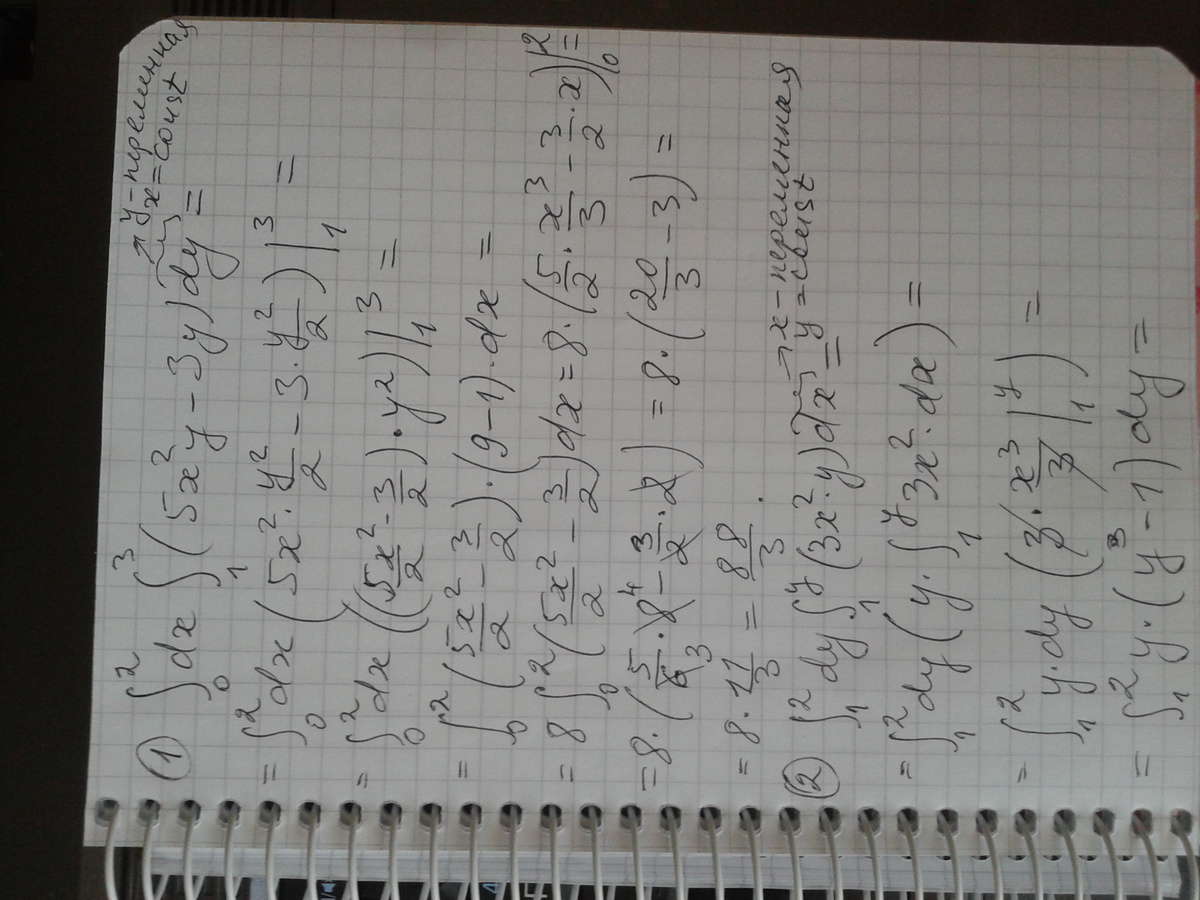 ① ∫₀² dx ∫₁³ (5x²y - 3y) dy = → y - переменная x = const
= ∫₀² dx (5x² · y²/2 - 3 · y²/2) |₁³ =
= ∫₀² dx ((5x²/2 - 3/2) · y²) |₁³ =
= ∫₀² (5x²/2 - 3/2) · (9 - 1) · dx =
= 8 ∫₀² (5x²/2 - 3/2) dx = 8 · (5/2 · x³/3 - 3/2 · x) |₀² =
= 8 · (5/6 · 8 - 3/2 · 2) = 8 · (20/3 - 3) =
4
3
= 8 · 11/3 = 88/3.
② ∫₁² dy ∫₁ʸ (3x² · y) dx = → x - переменная y = const
= ∫₁² dy (y · ∫₁ʸ 3x² · dx) =
= ∫₁² y · dy (3 · x³/3 |₁ʸ) =
= ∫₁² y · (y³ - 1) dy =